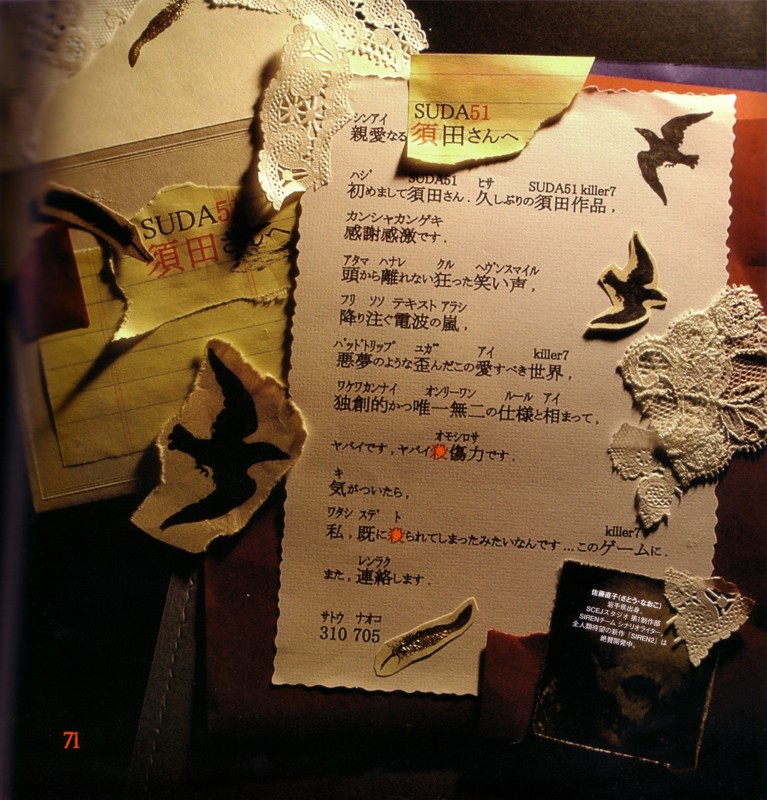 SUDA51
須田さんへ
SUDA5
須田さんへ
シンアイ
親愛なる
ハジ SUDA51 ヒサ SUDA51 killer7
初めまして須田さん.久しぶりの須田作品,
カンシャカンゲキ
感謝感激です.
アタマ ハナレ クル ヘヴンスマイル
頭から離れない狂った笑い声,
フリ ソソ テキスト アラシ
降り注ぐ電波の嵐,
バッドトリップ ユガ アイ killer7
悪夢のような歪んだこの愛すべき世界,
ワケワカンナイ オンリーワン ルール アイ
独創的かつ唯一無二の仕様と相まって,
オモシロサ
ヤバイです,ヤバイ殺傷力です.
キ
気がついたら,
ワタシ スデ ト killer7
私,既に殺られてしまったみたいなんです...このゲームに.
レンラク
また,連絡します.
サトウ ナオコ
310 705
佐藤直子(さとう・なおこ)
岩手県出身。
SCEJスタジオ 第1制作部
SIRENチーム シナリオライター。
全人類待望の新作「SIREN2」は
絶賛開発中。
71